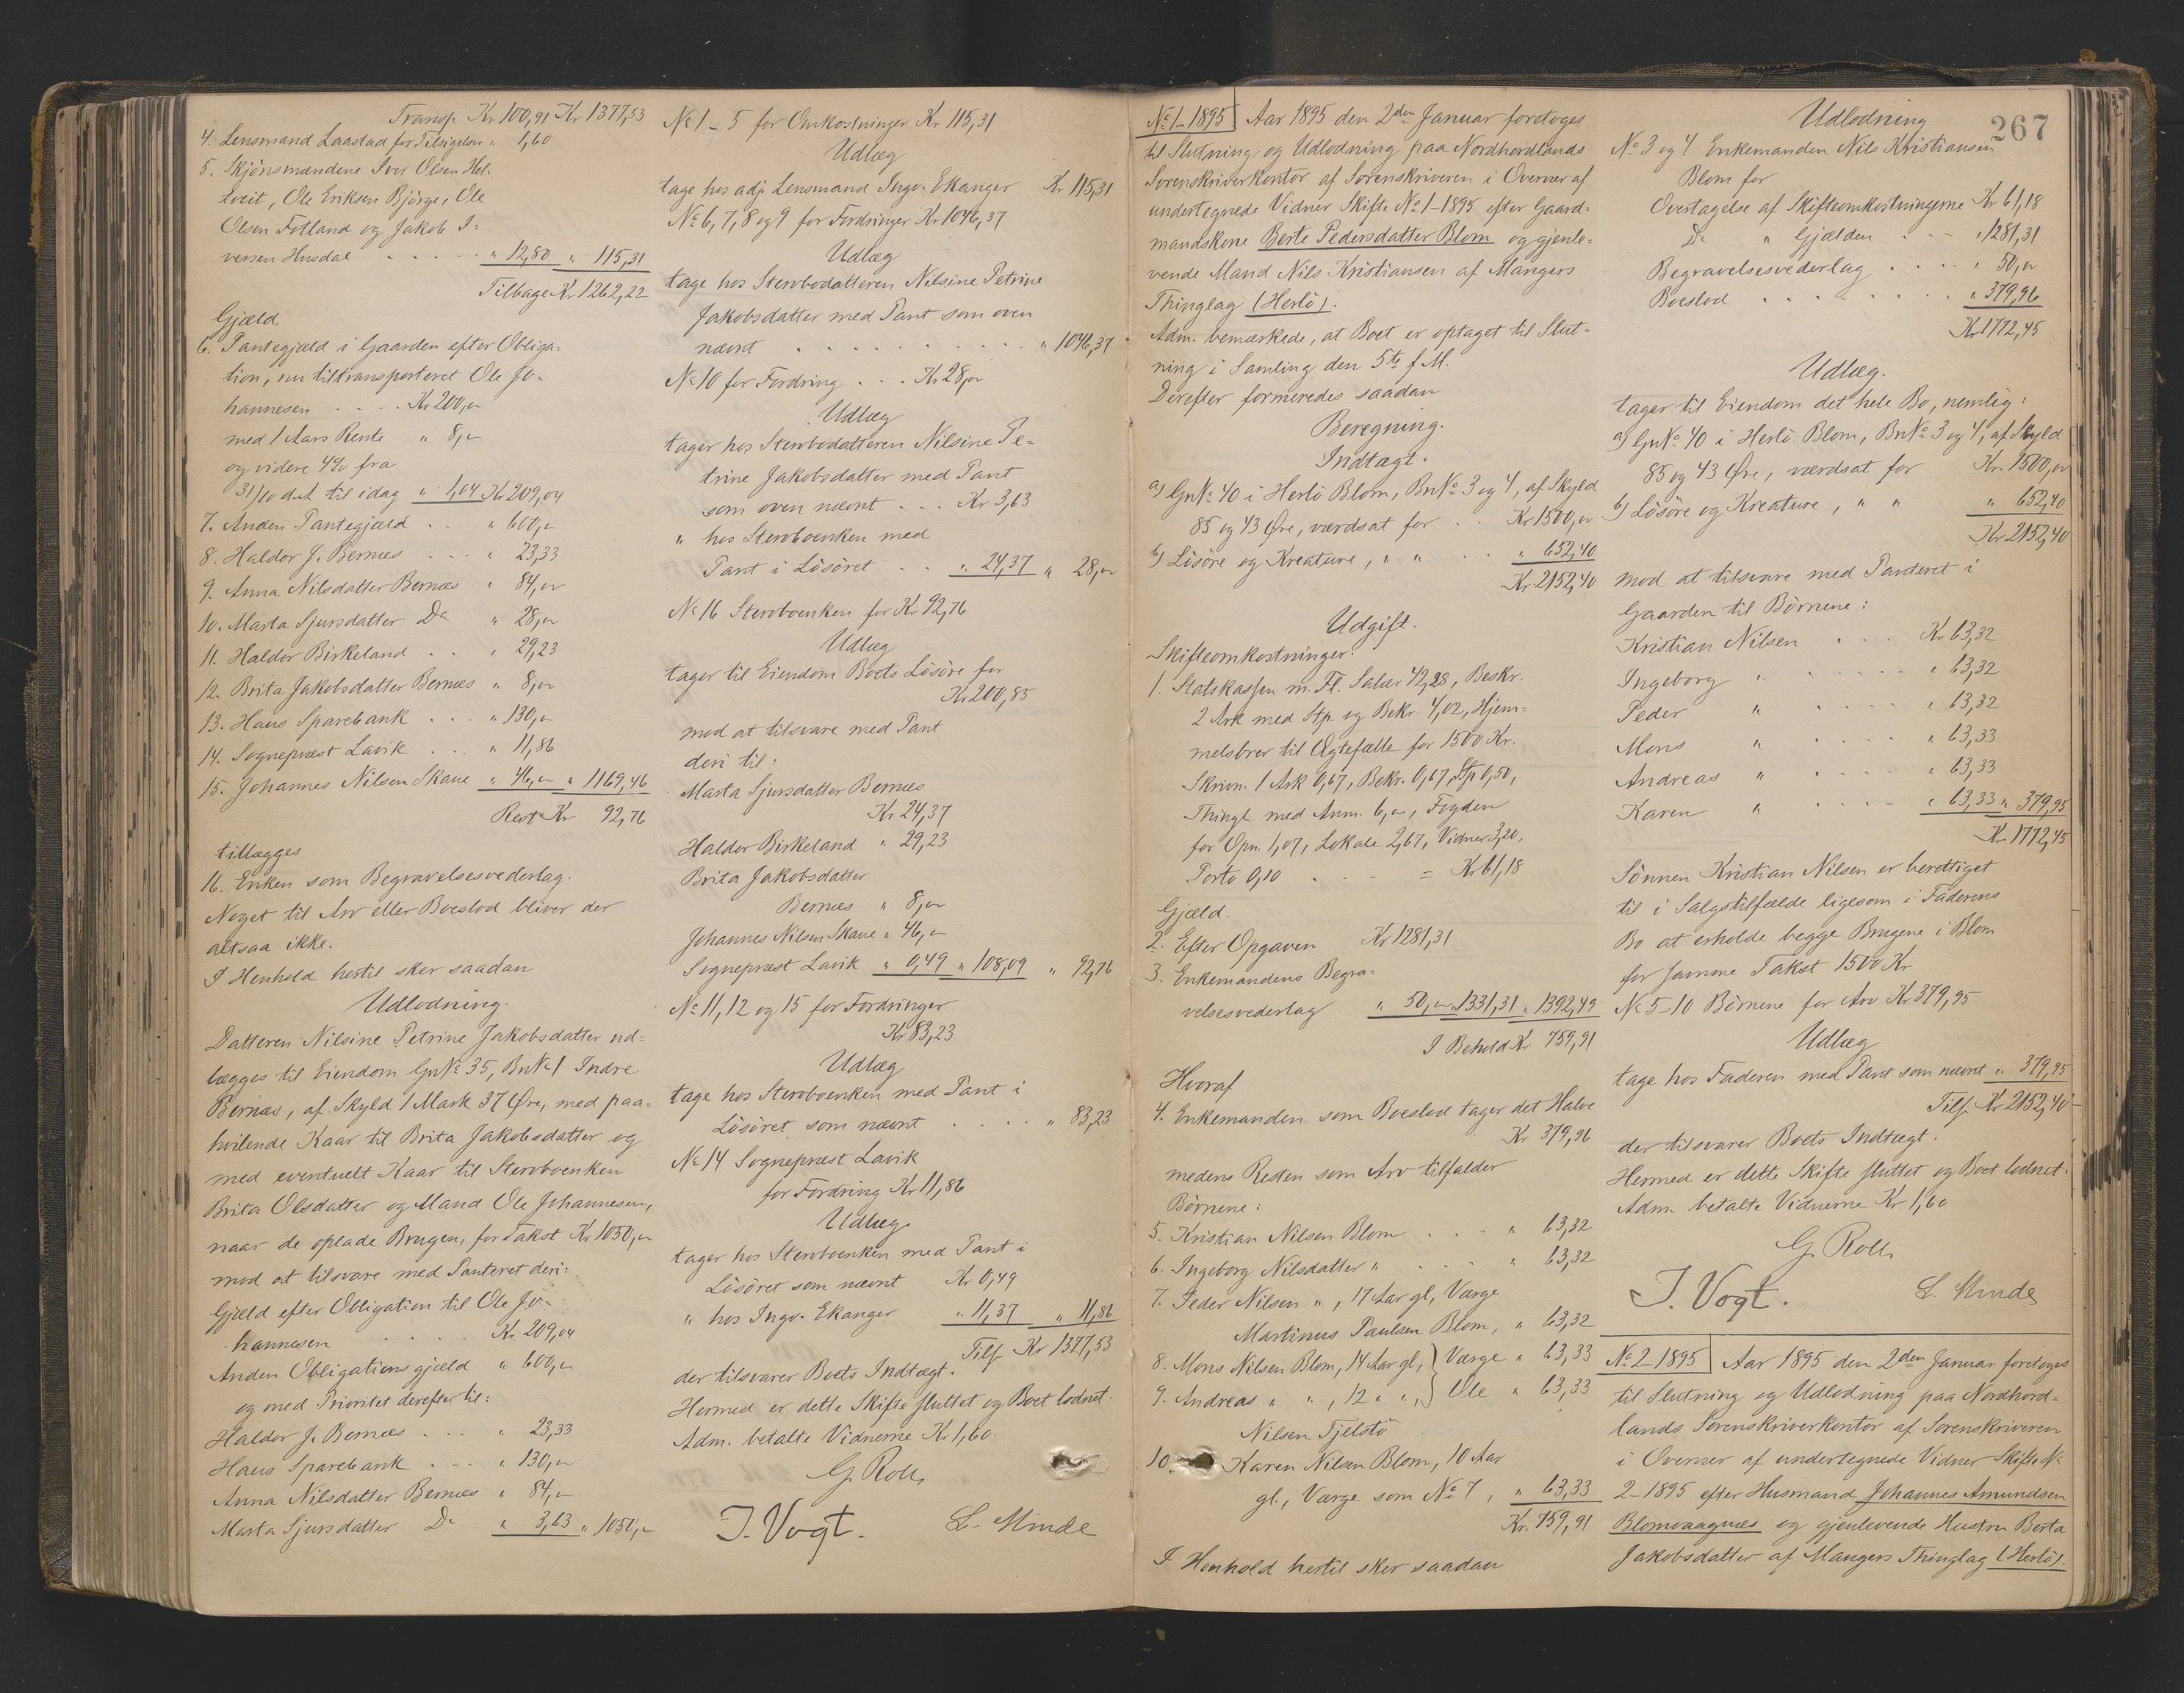 Transp. Kr 100,91 Kr 1377,53
4. Lensmand Laastad for Tilsigelsen " 1,60
5. Skjönsmændene Iver Olsen Hel-
tveit, Ole Eriksen Bjørge, Ole
Olsen Fotland og Jakob I-
versen Husdal . . . . " 12,80 " 115,31
Tilbage Kr 1262,22
Gjæld.
6. Pantegjæld i Gaarden efter Obliga-
tion, nu tiltransporteret Ole Jo-
hannesen . . . . Kr 200,"
med 1 Aars Rente " 8,"
og videre 4% fra
31/10 d.A. til idag " 1,04 Kr 209,04
7. Anden Pantegjæld . . " 600,"
8. Haldor J. Bernæs . . . " 23,33
9. Anna Nilsdatter Bernæs " 84,"
10. Marta Sjursdatter Do " 28,"
11. Haldor Birkeland . . " 29,23
12. Brita Jakobsdatter Bernæs " 8,"
13. Haus Sparebank . . . " 130,"
14. Sogneprest Lavik . . . " 11,86
15. Johannes Nilsen Skaue " 46," " 1169,46
Rest Kr 92,76
tillægges
16. Enken som Begravelsesvederlag.
Noget til Arv eller Boeslod bliver der
altsaa ikke.
I Henhold hertil sker saadan
Udlodning.
Datteren Nilsine Petrine Jakobsdatter ud-
lægges til Eiendom GnNo 35, BnNo 1 Indre
Bernæs, af Skyld 1 Mark 37 Øre, med paa-
hvilende Kaar til Brita Jakobsdatter og
med eventuelt Kaar til Stervboenken
Brita Olsdatter og Mand Ole Johannesen,
naar de oplade Brugen, for Takst Kr 1050,"
mod at tilsvare med Panteret deri:
Gjæld efter Obligation til Ole Jo-
hannesen . . . . . Kr 209,04
Anden Obligationsgjæld " 600,"
og med Prioritet derefter til:
Haldor J. Bernæs . . . " 23,33
Haus Sparebank . . . " 130,"
Anna Nilsdatter Bernæs " 84,"
Marta Sjursdatter Do " 3,63 " 1050,"
No 1 - 5 for Omkostninger Kr 115,31
Udlæg
tage hos adj. Lensmand Ingv. Ekanger Kr 115,31
No 6, 7, 8 og 9 for Fordringer Kr 1046,37
Udlæg
tage hos Stervbodatteren Nilsine Petrine
Jakobsdatter med Pant som oven
nævnt . . . . . . . . . . " 1046,37
No 10 for Fordring . . . Kr 28,"
Udlæg
tager hos Stervbodatteren Nilsine Pe-
trine Jakobsdatter med Pant
som oven nævnt . . . Kr 3,63
" hos Stervboenken med
Pant i Lösöret . . " 24,37 " 28,"
No 16 Stervboenken for Kr 92,76
Udlæg
tager til Eiendom Boets Lösöre for
Kr 200,85
mod at tilsvare med Pant
deri til:
Marta Sjursdatter Bernæs
Kr 24,37
Haldor Birkeland " 29,23
Brita Jakobsdatter
Bernæs " 8,"
Johannes Nilsen Skaue " 46,"
Sogneprest Lavik " 0,49 " 108,09 " 92,76
No 11, 12 og 15 for Fordringer
Kr 83,23
Udlæg
tage hos Stervboenken med Pant i
Lösöret som nævnt . . . . " 83,23
No 14 Sogneprest Lavik
for Fordring Kr 11,86
Udlæg
tager hos Stervboenken med Pant i
Lösöret som nævnt Kr 0,49
" hos Ingv. Ekanger " 11,37 " 11,86
Tils. Kr 1377,53
der tilsvarer Boets Indtægt.
Hermed er dette Skifte sluttet og Boet lodnet.
Adm. betalte Vidnerne Kr 1,60.
G. Roll
J. Vogt. L. Minde
No 1-1895 Aar 1895 den 2den Januar foretoges
til Slutning og Udlodning paa Nordhordlands
Sorenskriverkontor af Sorenskriveren i Overvær af
undertegnede Vidner Skifte No 1-1895 efter Gaard-
mandskone Berte Pedersdatter Blom og gjenle-
vende Mand Nils Kristiansen af Mangers
Thinglag (Herlö).
Adm. bemærkede, at Boet er optaget til Slut-
ning i Samling den 5te f.M.
Derefter formeredes saadan
Beregning.
Indtægt.
a) GnNo 40 i Herlö Blom, BnNo 3 og 4, af Skyld
85 og 43 Øre, værdsat for . . Kr 1500,"
b) Lösöre og Kreature, " " . . " 652,40
Kr 2152,40
Udgift.
Skifteomkostninger:
1. Statskassen m. Fl. Salær 42,28, Beskr.
2 Ark med Stp. og Bekr. 4,02, Hjem-
melsbrev til Ægtefælle for 1500 Kr.
Skrivn. 1 Ark 0,67, Bekr. 0,67, Stp 0,50,
Thingl. med Anm. 6,", Fogden
for Opn. 1,07, Lokale 2,67, Vidner 3,20,
Porto 0,10 . . . = Kr 61,18
Gjæld.
2. Efter Opgaven Kr 1281,31
3. Enkemandens Begra-
velsesvederlag " 50," " 1331,31 " 1392,49
I Behold Kr 759,91
Hvoraf
4. Enkemanden som Boeslod tager det Halve
Kr 379,96
medens Resten som Arv tilfalder
Børnene:
5. Kristian Nilsen Blom . . . " 63,32
6. Ingeborg Nilsdatter " . . . " 63,32
7. Peder Nilsen ", 17 Aar gl, Værge
Martinus Paulsen Blom, " 63,32
8. Mons Nilsen Blom, 14 Aar gl, } Værge " 63,33
9. Andreas " ", 12 " ", } Ole " 63,33
Nilsen Fjelstö
10. Karen Nilsen Blom, 10 Aar
gl., Værge som No 7, " 63,33
Kr. 759,91
I Henhold hertil sker saadan
267
Udlodning
No 3 og 4 Enkemanden Nils Kristiansen
Blom for
Overtagelse af Skifteomkostningerne Kr 61,18
Do " Gjælden . . . " 1281,31
Begravelsesvederlag . . . . " 50,"
Boeslod . . . . . . . . " 379,96
Kr 1772,45
Udlæg.
tager til Eiendom det hele Bo, nemlig:
a) GnNo 40 i Herlö Blom, BnNo 3 og 4, af Skyld
85 og 43 Øre, værdsat for Kr. 1500,"
b) Lösöre og Kreature, " " " 652,40
Kr 2152,40
mod at tilsvare med Panteret i
Gaarden til Börnene:
Kristian Nilsen . . . Kr 63,32
Ingeborg " . . . . . " 63,32
Peder " . . . . . " 63,32
Mons " . . . . . " 63,33
Andreas " . . . . . " 63,33
Karen " . . . . . " 63,33 " 379,95
Kr 1772,45
Sönnen Kristian Nilsen er berettiget
til i Salgstilfælde ligesom i Faderens
Bo at erholde begge Brugene i Blom
for samme Takst 1500 Kr
No 5-10 Börnene for Arv Kr 379,95
Udlæg
tage hos Faderen med Pant som nævnt " 379,95
Tils. Kr 2152,40
der tilsvarer Boets Indtægt.
Hermed er dette Skifte sluttet og Boet lodnet.
Adm. betalte Vidnerne Kr 1,60
G. Roll
J. Vogt. L. Minde
No 2-1895 Aar 1895 den 2den Januar foretoges
til Slutning og Udlodning paa Nordhord-
lands Sorenskriverkontor af Sorenskriveren
i Overvær af undertegnede Vidner Skifte No
2-1895 efter Husmand Johannes Amundsen
Blomvaagnes og gjenlevende Hustru Berta
Jakobsdatter af Mangers Thinglag (Herlö).